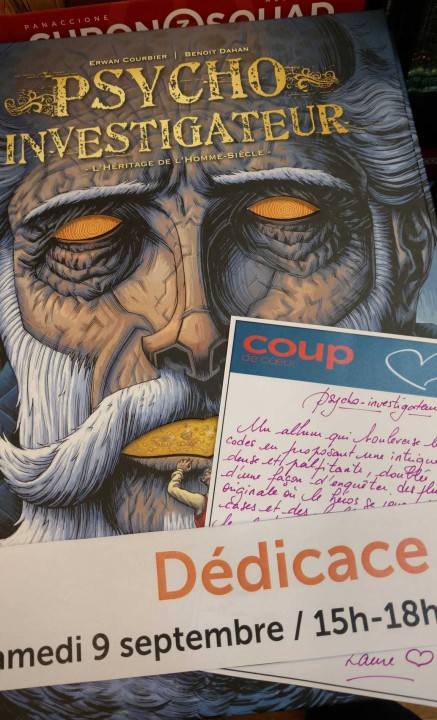 PANACCIONE
CHRON SQUAD
ERWAN COURBIER | BENOIT DAHAN
PSYCHO
INVESTIGATEUR
- L'HÉRITAGE DE L'HOMME-SIÈCLE -
coup
de cœur
psycho-investigateur
Un album qui bouleverse
codes en proposant une intrigue
dense et palpitante, doublée
d'une façon d'enquêter des
originale où le héros se
cases et des
Dédicace
amedi 9 septembre / 15h-18h
Laure ♡